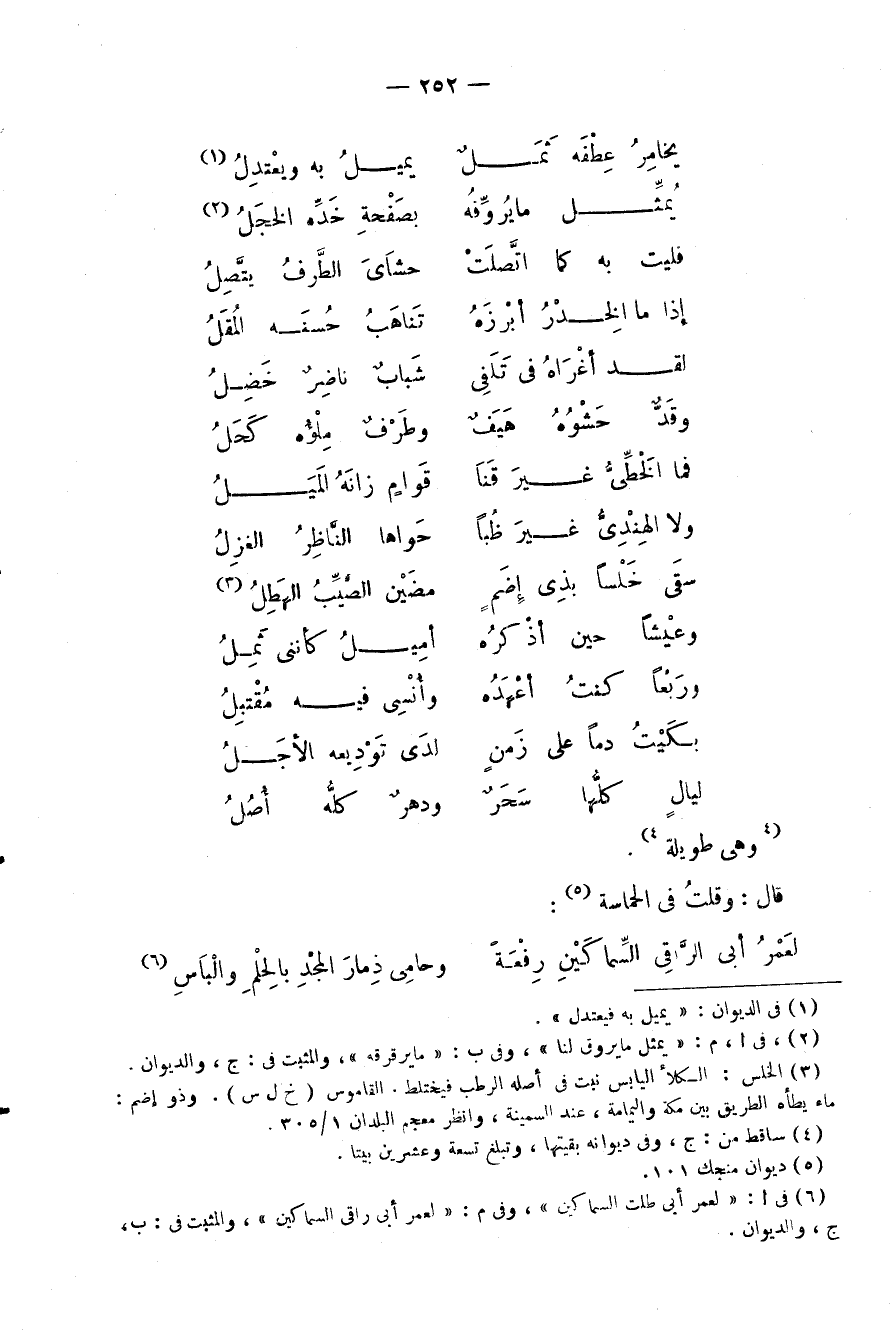 — ٢٥٢ —
يخامِرُ عِطْفَه ثَمَــلٌ يميــلُ به ويعْتدِلُ (١)
يُمثِّــل مايُروِّقُه بصَفْحةِ خَدِّه الخجَلُ (٢)
فليت به كما اتَّصلَتْ حشاىَ الطَّرفُ يتَّصِلُ
إذا ما الِخــدْرُ أبْرزَهُ تَناهَبُ حُسنَــه الُمقَلُ
لقــد أغْرَاهُ فى تَلَفِى شَبابٌ ناضِرٌ خَضِــلُ
وقَدٌّ حَشْوُهُ هَيَفٌ وطَرْفٌ مِلْؤُه كَحَلُ
فما الَخْطِّىُّ غــيرَ قَنَا قَوامٍ زانَهُ الَميَــلُ
ولا الهِنْدِىُّ غــيرَ ظُباً حَواها النَّاظِرُ الغزِلُ
سقَى خَلْساً بذِى إِضَمٍ مضَيْن الصَّيِّبُ الهَطِلُ (٣)
وعيْشاً حين أذْكرُه أمِيــلُ كأننى ثَمِــلُ
ورَبْعاً كنتُ أعْهَدُه وأُنْسِى فيــه مُقْتبِلُ
بــكَيْتُ دماً على زَمنٍ لدَى تَوْدِيعه الأجَــلُ
ليالٍ كلُّها سَحَرٌ ودهرٌ كلُّه أُصُلُ
(٤ وهى طويلة ٤) .
قال : وقلتُ فى الحماسة (٥) :
لعَمْرُ أبى الرَّاقِى السِّماكَيْنِ رِفْعَــةً وحامِى ذِمارَ الَمجْدِ بالِحلْمِ والْبَاسِ (٦)
(١) فى الديوان : « يميل به فيعتدل » .
(٢) ، فى ا ، م : « يمثل مايروق لنا » ، وفى ب : « مايرقرقه » ، والمثبت فى : ج ، والديوان .
(٣) الخلس : الــكلأ اليابس نبت فى أصله الرطب فيختلط . القاموس ( خ ل س ) . وذو إضم :
ماء يطأه الطريق بين مكة واليمامة ، عند السمينة ، وانظر معجم البلدان ٣٠٥/١ .
(٤) ساقط من : ج ، وفى ديوانه بقيتها ، وتبلغ تسعة وعشرين بيتا .
(٥) ديوان منجك ١٠١.
(٦) فى ا : « لعمر أبى طلت السماكين » ، وفى م : « لعمر أبى راقى السماكين » ، والمثبت فى : ب،
ج ، والديوان .